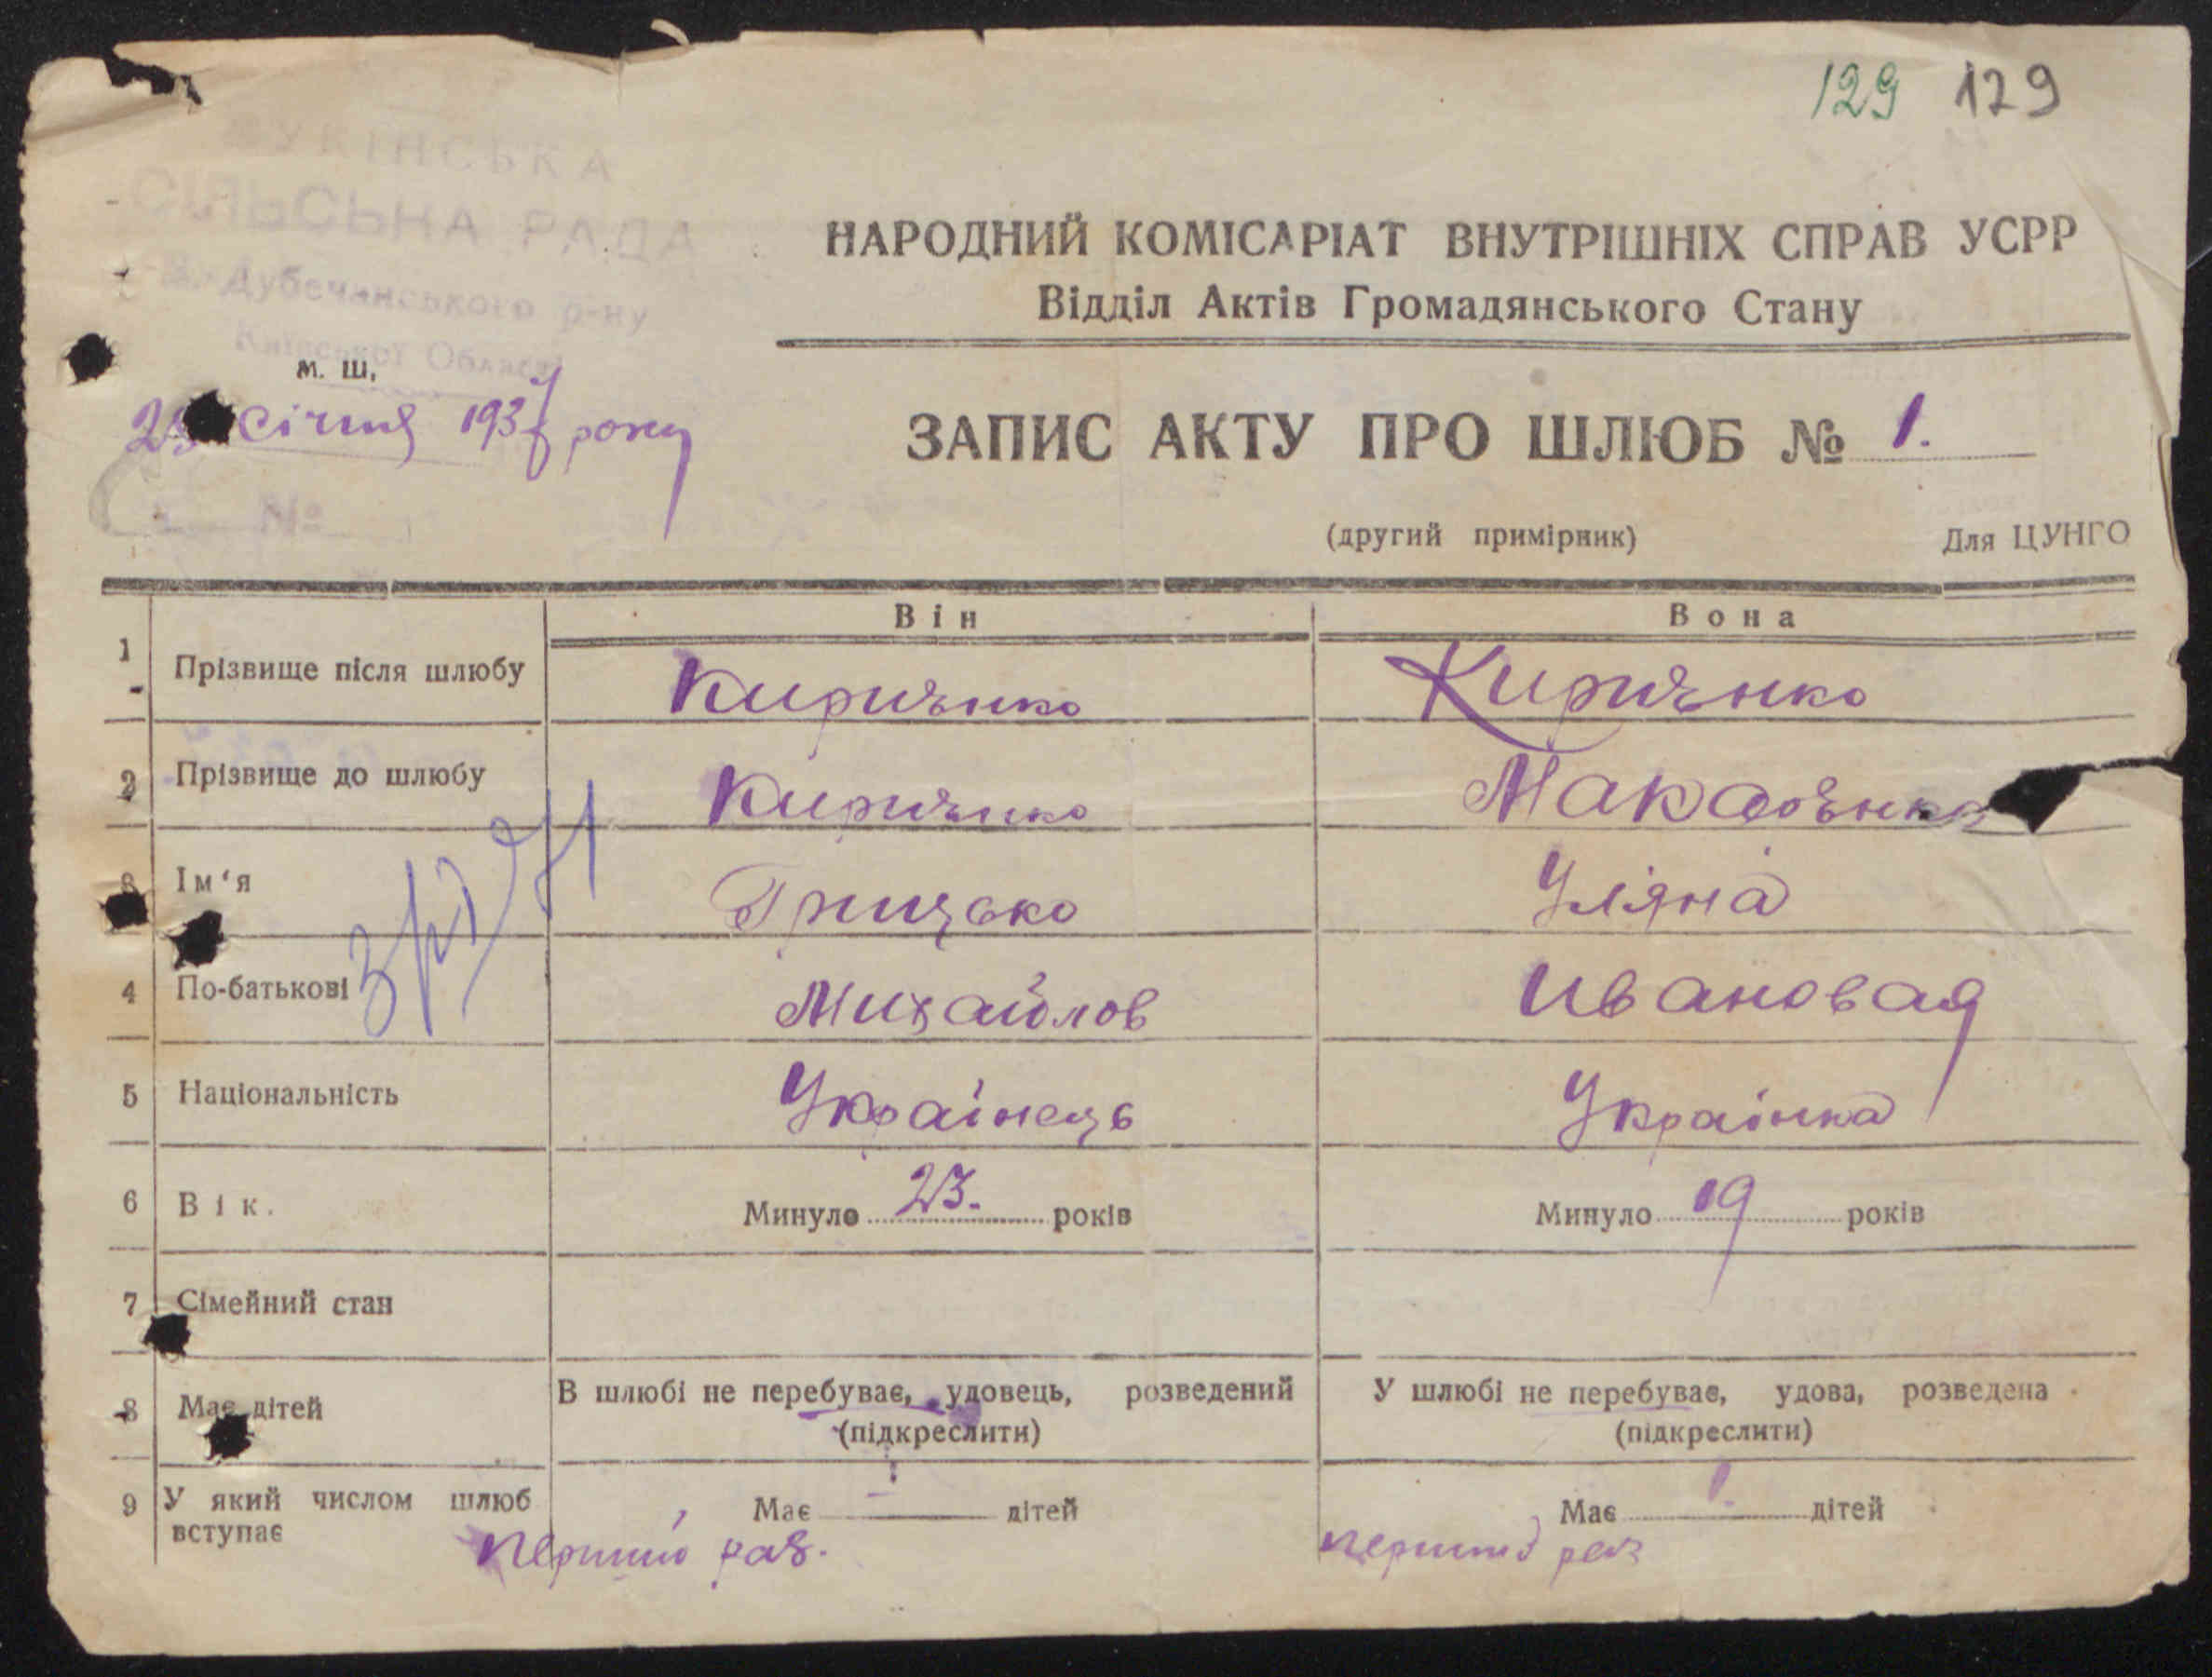 129 129
СІЛЬСЬКА РАДА
Дубечанського р-ну
Київської Області
НАРОДНИЙ КОМІСАРІАТ ВНУТРІШНІХ СПРАВ УСРР
Відділ Актів Громадянського Стану
м. ш.
січня 1937 року
ЗАПИС АКТУ ПРО ШЛЮБ № 1.
№
(другий примірник) Для ЦУНГО
Він Вона
1 Прізвище після шлюбу Киричэнко Киричэнко
2 Прізвище до шлюбу Киричэнко
3 Ім'я Грицько Уляна
4 По-батькові Михайлов Ивановая
5 Національність Українець Українка
6 Вік. Минуло 23. років Минуло 19 років
7 Сімейний стан
8 Має дітей В шлюбі не перебуває, удовець, розведений У шлюбі не перебуває, удова, розведена
(підкреслити) (підкреслити)
9 У який числом шлюб вступає Має дітей Має дітей
перший раз. перший раз